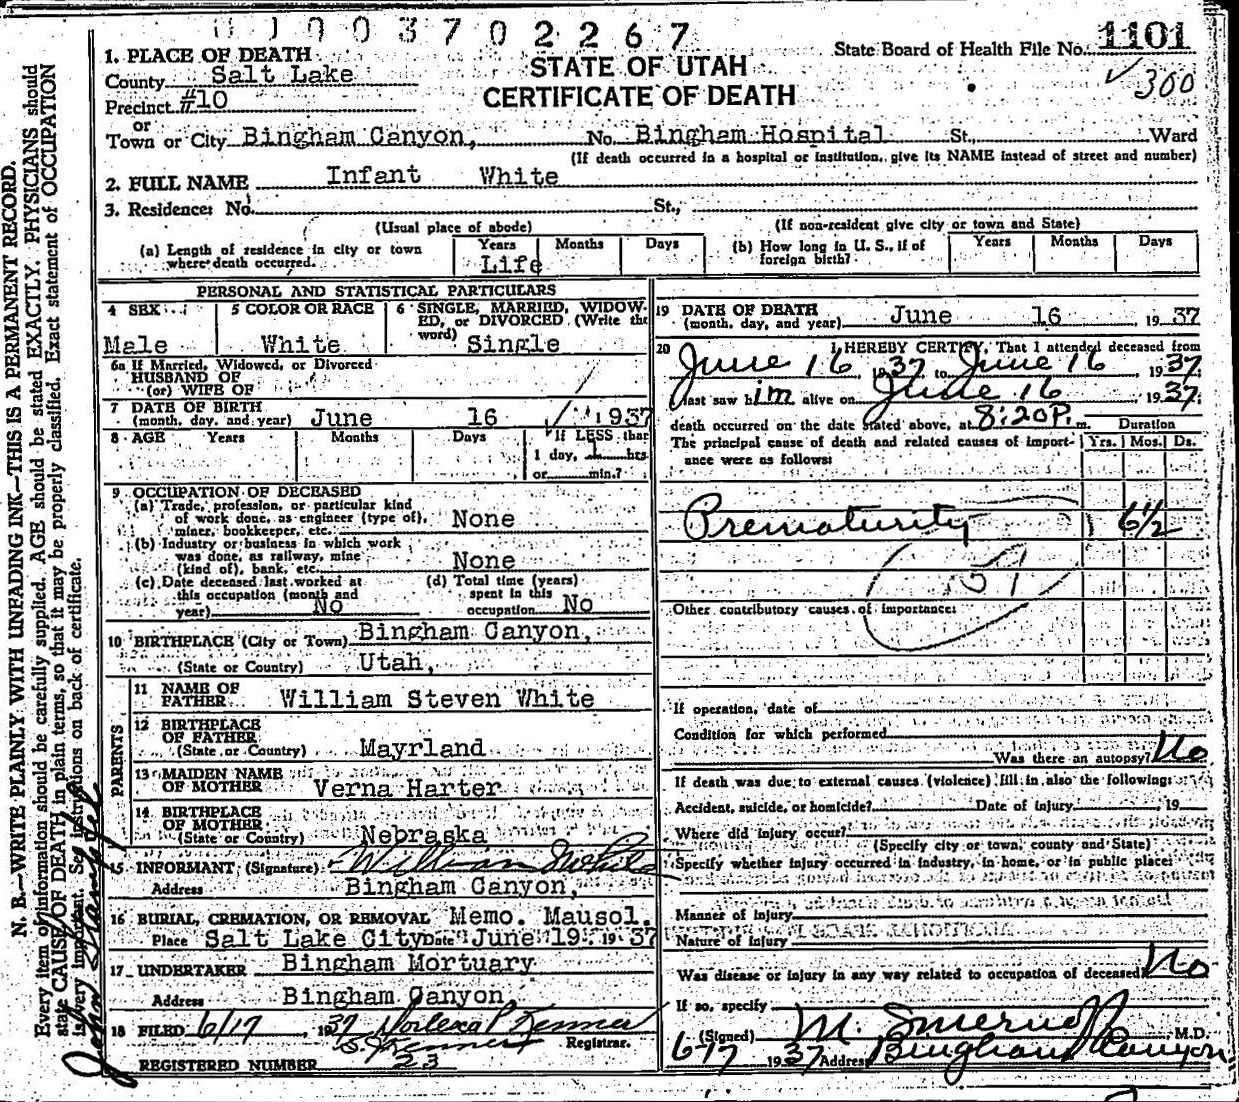 1 0 0 3 7 0 2 2 6 7
State Board of Health File No. 1101
300
1. PLACE OF DEATH
STATE OF UTAH
County Salt Lake
CERTIFICATE OF DEATH
Precinct #10
or
Town or City Bingham Canyon, No. Bingham Hospital St., Ward
(If death occurred in a hospital or institution, give its NAME instead of street and number)
2. FULL NAME Infant White
3. Residence: No. St.,
(Usual place of abode) (If non-resident give city or town and State)
(a) Length of residence in city or town where death occurred. Years Months Days
Life
(b) How long in U. S., if of foreign birth? Years Months Days
PERSONAL AND STATISTICAL PARTICULARS
4 SEX 5 COLOR OR RACE 6 SINGLE, MARRIED, WIDOW-
ED, or DIVORCED (Write the
word)
Male White Single
6a If Married, Widowed, or Divorced
HUSBAND OF
(or) WIFE OF
7 DATE OF BIRTH
(month, day, and year) June 16 1937
8 AGE Years Months Days If LESS than
1 day, 1 hrs.
or min.?
9 OCCUPATION OF DECEASED
(a) Trade, profession, or particular kind
of work done, as engineer (type of),
miner, bookkeeper, etc. None
(b) Industry or business in which work
was done, as railway, mine
(kind of), bank, etc. None
(c) Date deceased last worked at
this occupation (month and
year) No
(d) Total time (years)
spent in this
occupation No
10 BIRTHPLACE (City or Town) Bingham Canyon,
(State or Country) Utah,
PARENTS
11 NAME OF
FATHER William Steven White
12 BIRTHPLACE
OF FATHER
(State or Country) Mayrland
13 MAIDEN NAME
OF MOTHER Verna Harter
14 BIRTHPLACE
OF MOTHER
(State or Country) Nebraska
15 INFORMANT (Signature) William S White
Address Bingham Canyon,
16 BURIAL, CREMATION, OR REMOVAL Memo. Mausol.
Place Salt Lake City Date June 19 1937
17 UNDERTAKER Bingham Mortuary
Address Bingham Canyon
18 FILED 6/17, 1937
Registrar.
REGISTERED NUMBER 23
19 DATE OF DEATH
(month, day, and year) June 16, 1937
20 I HEREBY CERTIFY, That I attended deceased from
June 16, 1937 to June 16, 1937.
last saw him alive on June 16, 1937;
death occurred on the date stated above, at 8:20P. m. Duration
The principal cause of death and related causes of import-
ance were as follows: Yrs. Mos. Ds.
Prematurity 6½
159
Other contributory causes of importance:
If operation, date of
Condition for which performed
Was there an autopsy? No
If death was due to external causes (violence) fill in also the following:
Accident, suicide, or homicide? Date of injury, 19
Where did injury occur?
(Specify city or town, county and State)
Specify whether injury occurred in industry, in home, or in public place:
Manner of Injury
Nature of Injury
Was disease or injury in any way related to occupation of deceased? No
If so, specify
(Signed) M. M.D.
6-17 1937 Address Bingham Canyon.
N. B.—WRITE PLAINLY WITH UNFADING INK—THIS IS A PERMANENT RECORD.
Every item of information should be carefully supplied. AGE should be stated EXACTLY. PHYSICIANS should
state CAUSE OF DEATH in plain terms, so that it may be properly classified. Exact statement of OCCUPATION
is very important. See instructions on back of certificate.